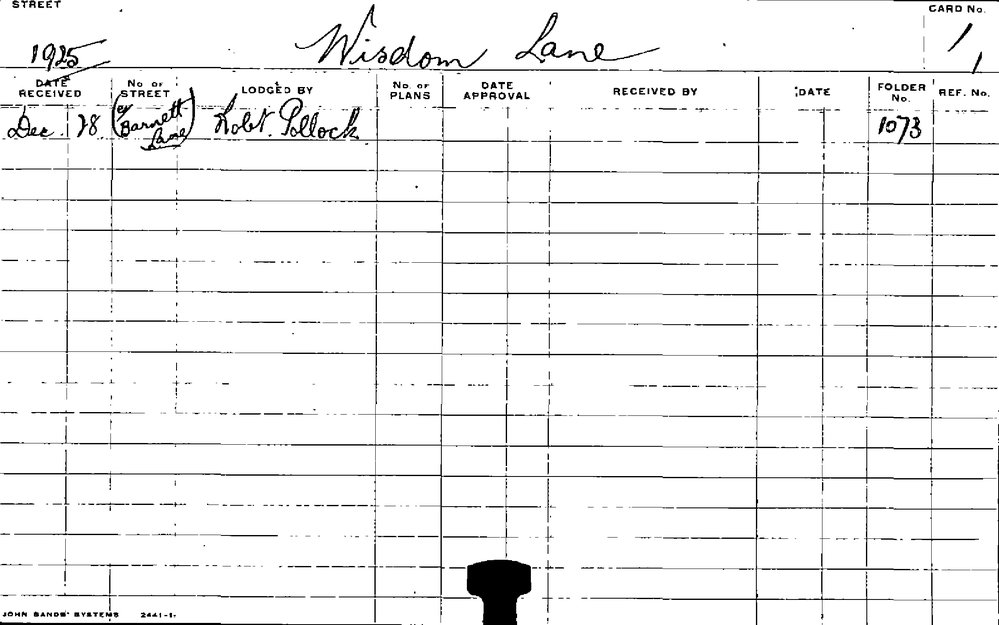 STREET
CARD No.
1925
Wisdom Lane
1,
DATE RECEIVED
No of STREET
LODGED BY
No. of PLANS
DATE APPROVAL
RECEIVED BY
DATE
FOLDER No.
REF. No.
Dec. 28
Barnett
Lane)
Robt. Pollock
1073
JOHN SANDS' SYSTEMS 2441-1-